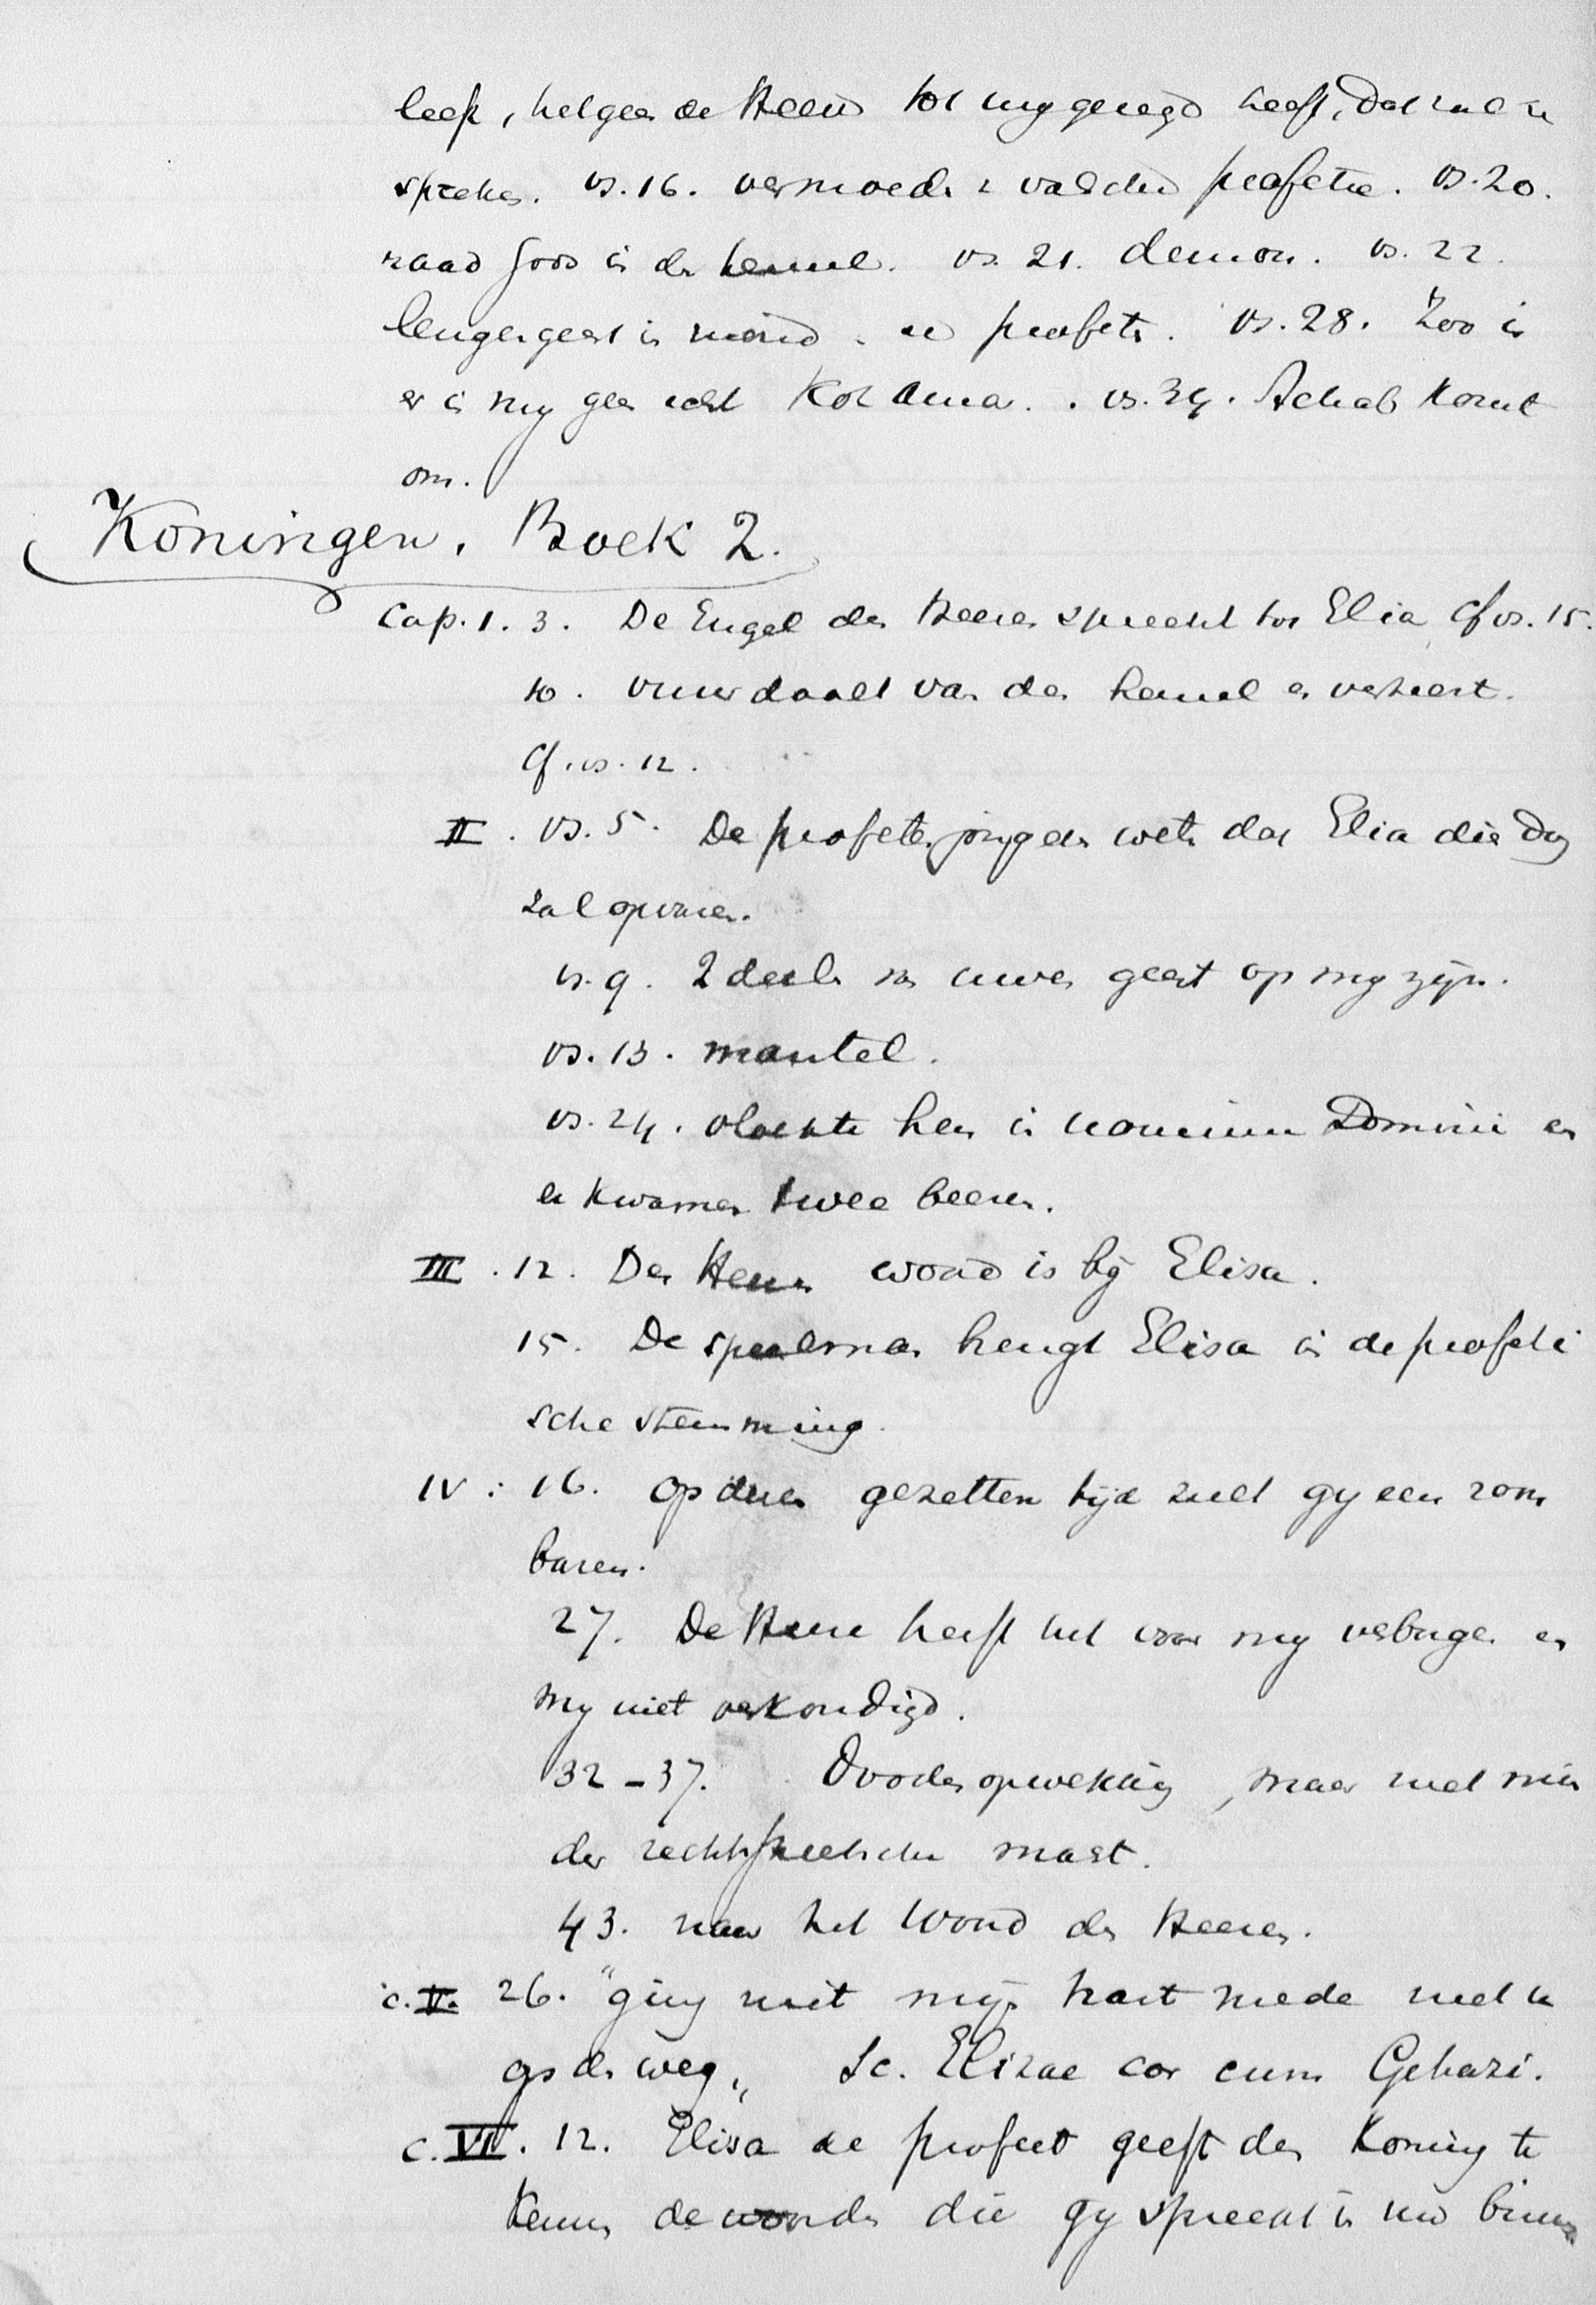 leeft, hetgeen de Heere tot my gezegd heeft, dat zal ik
spreken. vs. 16. vermoeden valsche profetie. vs. 20.
raad Gods in den hemel. vs. 21. demon. vs. 22.
leugengeest in mond profeten. vs. 28. Zoo is
er in my geen echt. vs. 34. Achab komt
om.
Koningen. Boek 2.
Cap. 1. 3. De Engel des Heeren spreekt tot Elia cf vs. 15.
10. vuur daalt van den hemel en verteert.
Cf. vs. 12.
II. vs. 5. De profetenjongeren weten dat Elia die dag
zal opvaren.
vs. 9. 2 deelen van uwen geest op my zijn.
vs. 13. mantel.
vs. 24. vloekte hen in nomine Domini en
er kwamen twee beeren.
III. 12. Des Heeren woord is bij Elisa.
15. De speelman brengt Elisa in de profeti
sche stemming.
IV: 16. op dezen gezetten tijd zult gy een zoon
baren.
27. De Heere heeft het voor my verborgen en
my niet verkondigd.
32-37. Doodenopwekking, maar met min
der rechtstreeksche macht.
43. naar het Woord des Heeren.
c. V. 26. "ging niet mijn hart mede met u
op den weg„ Sc. Elizae cor cum Gehazi.
c. VI. 12. Elisa de profeet geeft den Koning te
kennen de woorden die gy spreekt in uw binnen